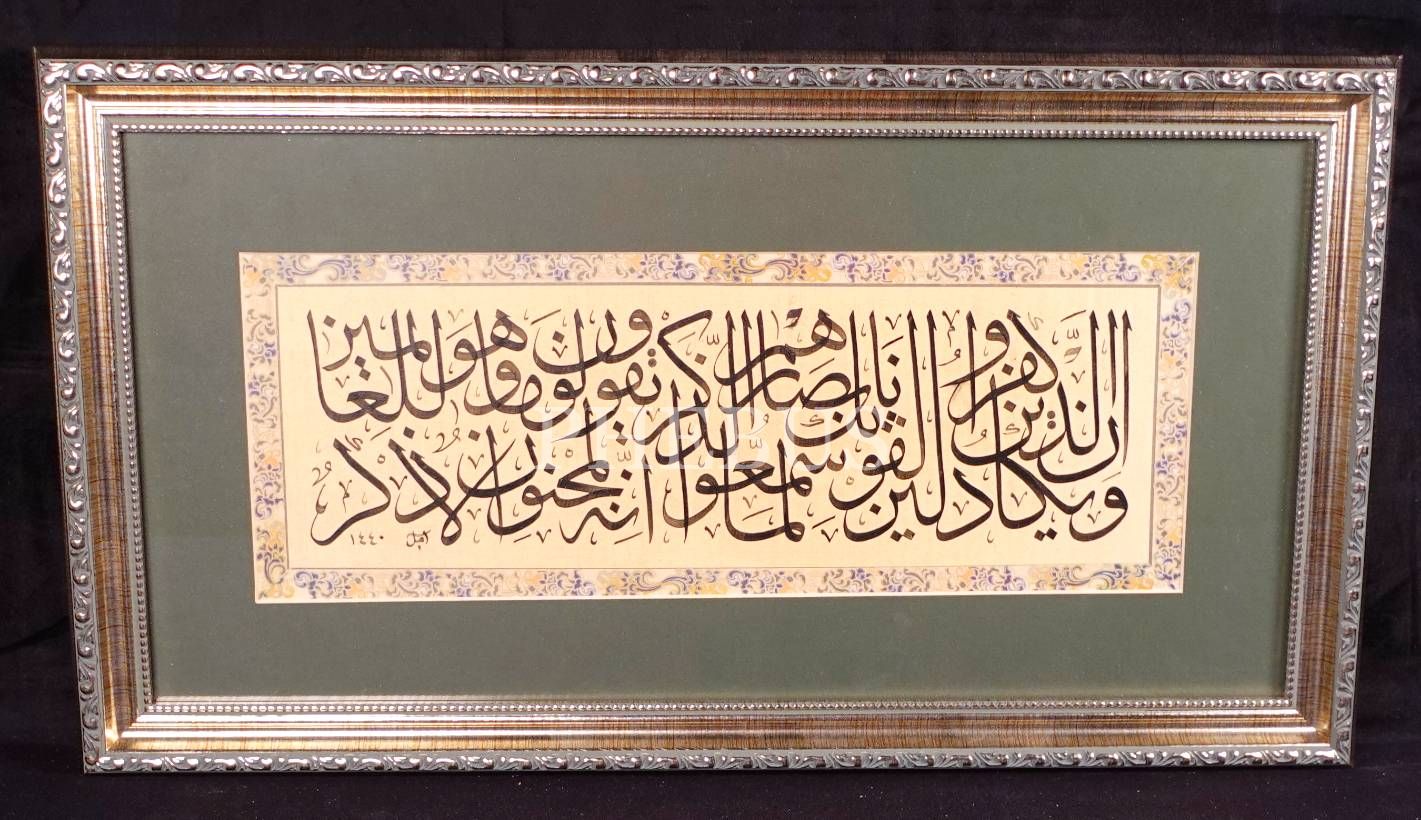 وَإِن يَكَادُ الَّذِينَ كَفَرُوا لَيُزْلِقُونَكَ بِأَبْصَارِهِمْ لَمَّا سَمِعُوا الذِّكْرَ وَيَقُولُونَ إِنَّهُ لَمَجْنُونٌ وَمَا هُوَ إِلَّا ذِكْرٌ لِّلْعَالَمِينَ
١٤٤٠
PHEBUS